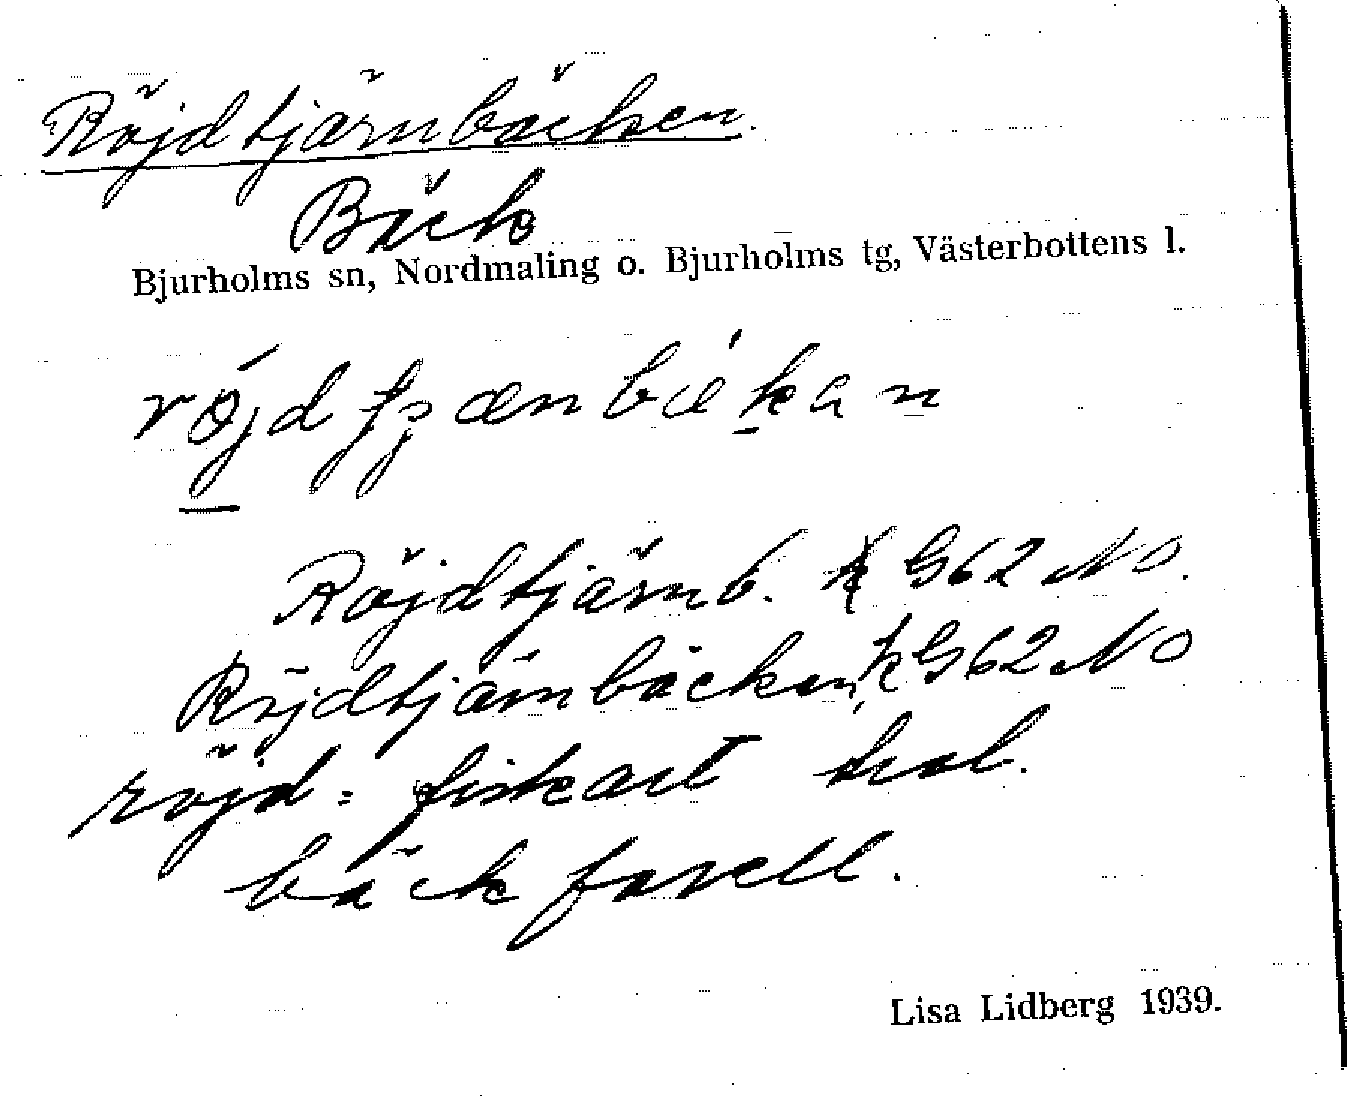 Röjdtjärnbäcken
Bäck
Bjurholms sn, Nordmaling o. Bjurholms tg, Västerbottens l.
Röjdtjärnb. k G62 NO.
Röjdtjärnbäcken, k G62 NO
röjd = fiskart trol.
bäckforell.
Lisa Lidberg 1939.